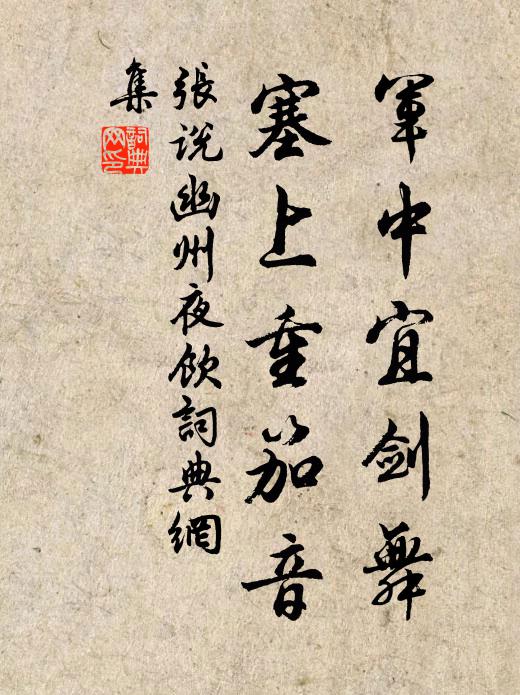 軍中宜劍舞
塞上重笳音
張說幽州夜飲詞典網
集
詞典
网印